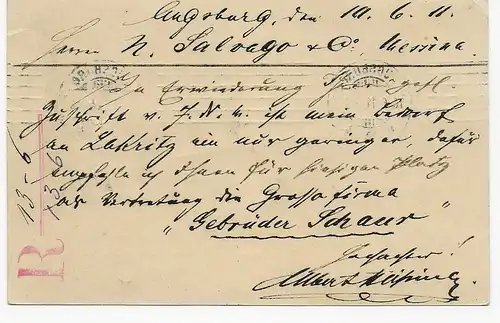 Augsburg, den 10. 6. 11.
Herrn N. Salvago & Co. Messina
In Erwiderung Ihrer gefl.
Zuschrift v. 7. d. M. ist mein Bedarf
an Lakritz ein nur geringer, dafür
empfehle ich Ihnen für hiesigen Platz
als Vertretung die Grossfirma
"Gebrüder Schaur"
Hochachtend!
Albert
13-6
13/6
R